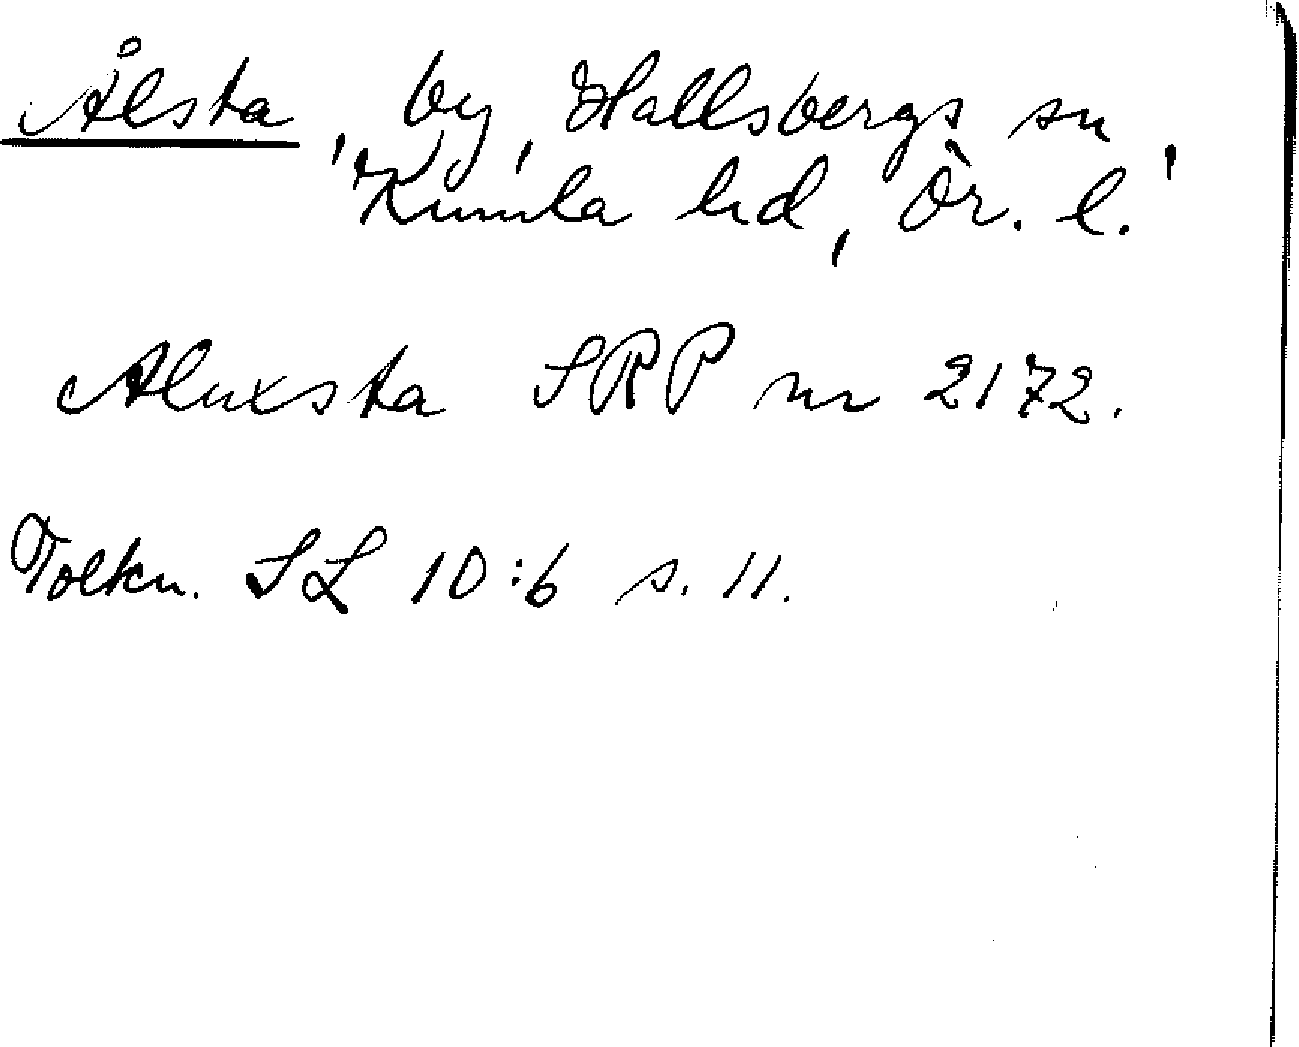 Ålsta, by, Hallsbergs sn,
Kumla hd, Ör. l.
Aluxsta SRP nr 2172.
Tolkn. SL 10:6 s. 11.